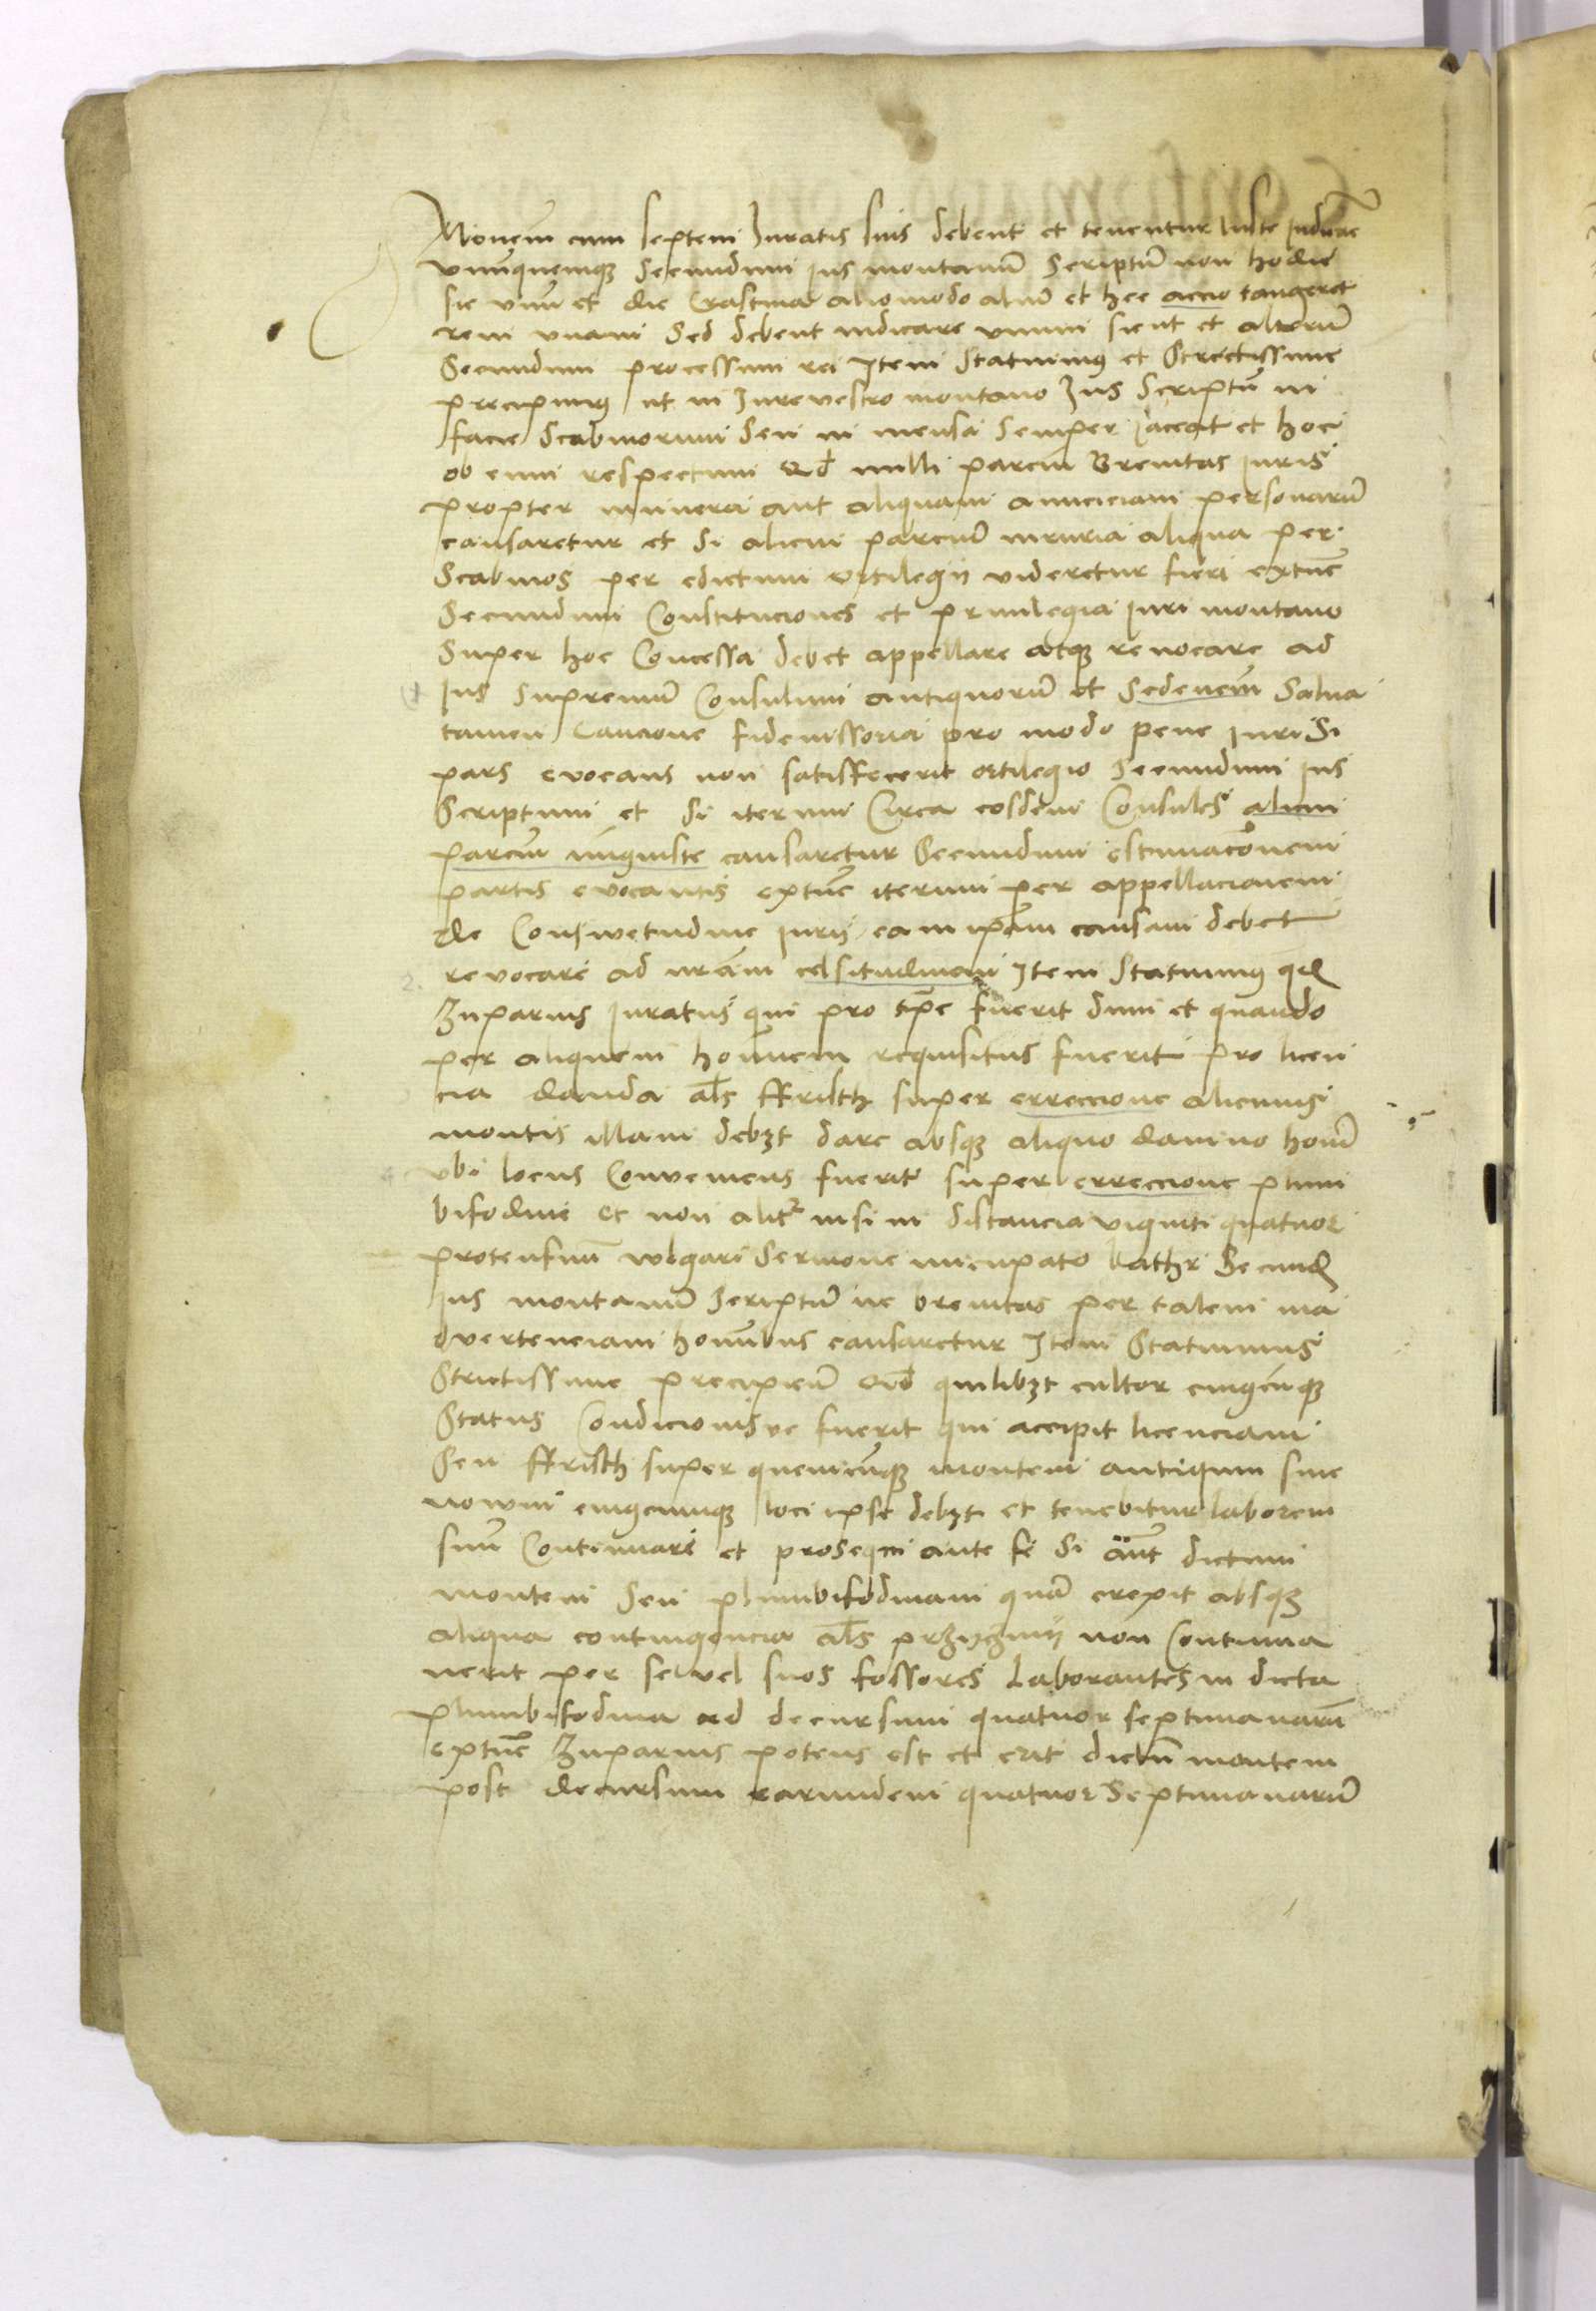 Monem cum septem Juratis suis debent et tenentur iuste iudicare
vnũquemq₃ Secundum ius montanũ Scriptũ non hodie
sic vnũ et die Crastina aliomodo aliũ et hec accio tangeret
rem vnam Sed debent iudicare vnum sicut et alterũ
Secundum processum rei Item Statuimus et Strictissime
precipimus ut in Jure vestro montano Jus Scriptũ in
facie Scabinorum Seu in mensa Semper iaceat et hoc
ob eum respectum Qd nulli parciũ Breuitas iuris
propter munera aut aliquam amiciciam personarũ
causaretur et Si alicui parciũ iniuria aliqua per
Scabinos per edictum ortilegii videretur fieri extũc
Secundum Constituciones et priuilegia iuri montano
Super hoc Concessa debet appellare atq₃ reuocare ad
ius Supremũ Consulum antiquorũ et Sedenem̃ Salua
tamen Caucione fideiussoria pro modo pene iuri Si
pars euocans non satisfecerit ortilegio Secundum ius
Scriptum et Si iterum Circa eosdem Consules alicui
parciũ iniuste causaretur Secundum estimac̃onem
partis euocantis extũc iterum per appellacionem
de Conswetudine iuris eam ip̃am causam debet
reuocare ad nr̃am celsitudinem Item Statuimus qd
Zuparius iuratus qui pro tp̃e fuerit dum et quando
per aliquem hoĩnem requisitus fuerit pro licen
cia danda al̃s ffristh super erreccione alicuius
montis illam deb₃t dare absq₃ aliquo damno hoim̃
vbi locus Conueniens fuerit super erreccione plum
bifodine et non alitr̃ nisi in distancia viginti quatuor
protensuũ wlgari Sermone nuncupato Lathr Secund
ius montanũ Scriptũ ne breuitas per talem ina
duertenciam hominibus causaretur Item Statuimus
Strictissime precipiendũ Qd quilib₃t cultor cuiuscũq₃
Status Condicionisue fuerit qui accipit licenciam
Seu ffristh super quemcũq₃ montem antiquum siue
nowm cuiuscumq₃ loci ipse deb₃t et tenebitur laborem
suũ Continuare et prosequi ante se Si aũt dictum
montem Seu plumbifodinam quã erexit absq₃
aliqua contingencia al̃s non Continua
uerit per se vel suos fossores Laborantes in dicta
plumbifodina ad decursum quatuor septimanarũ
extũc Zuparius potens est et erit dictũ montem
post decursum earundem quatuor Septimanarũ